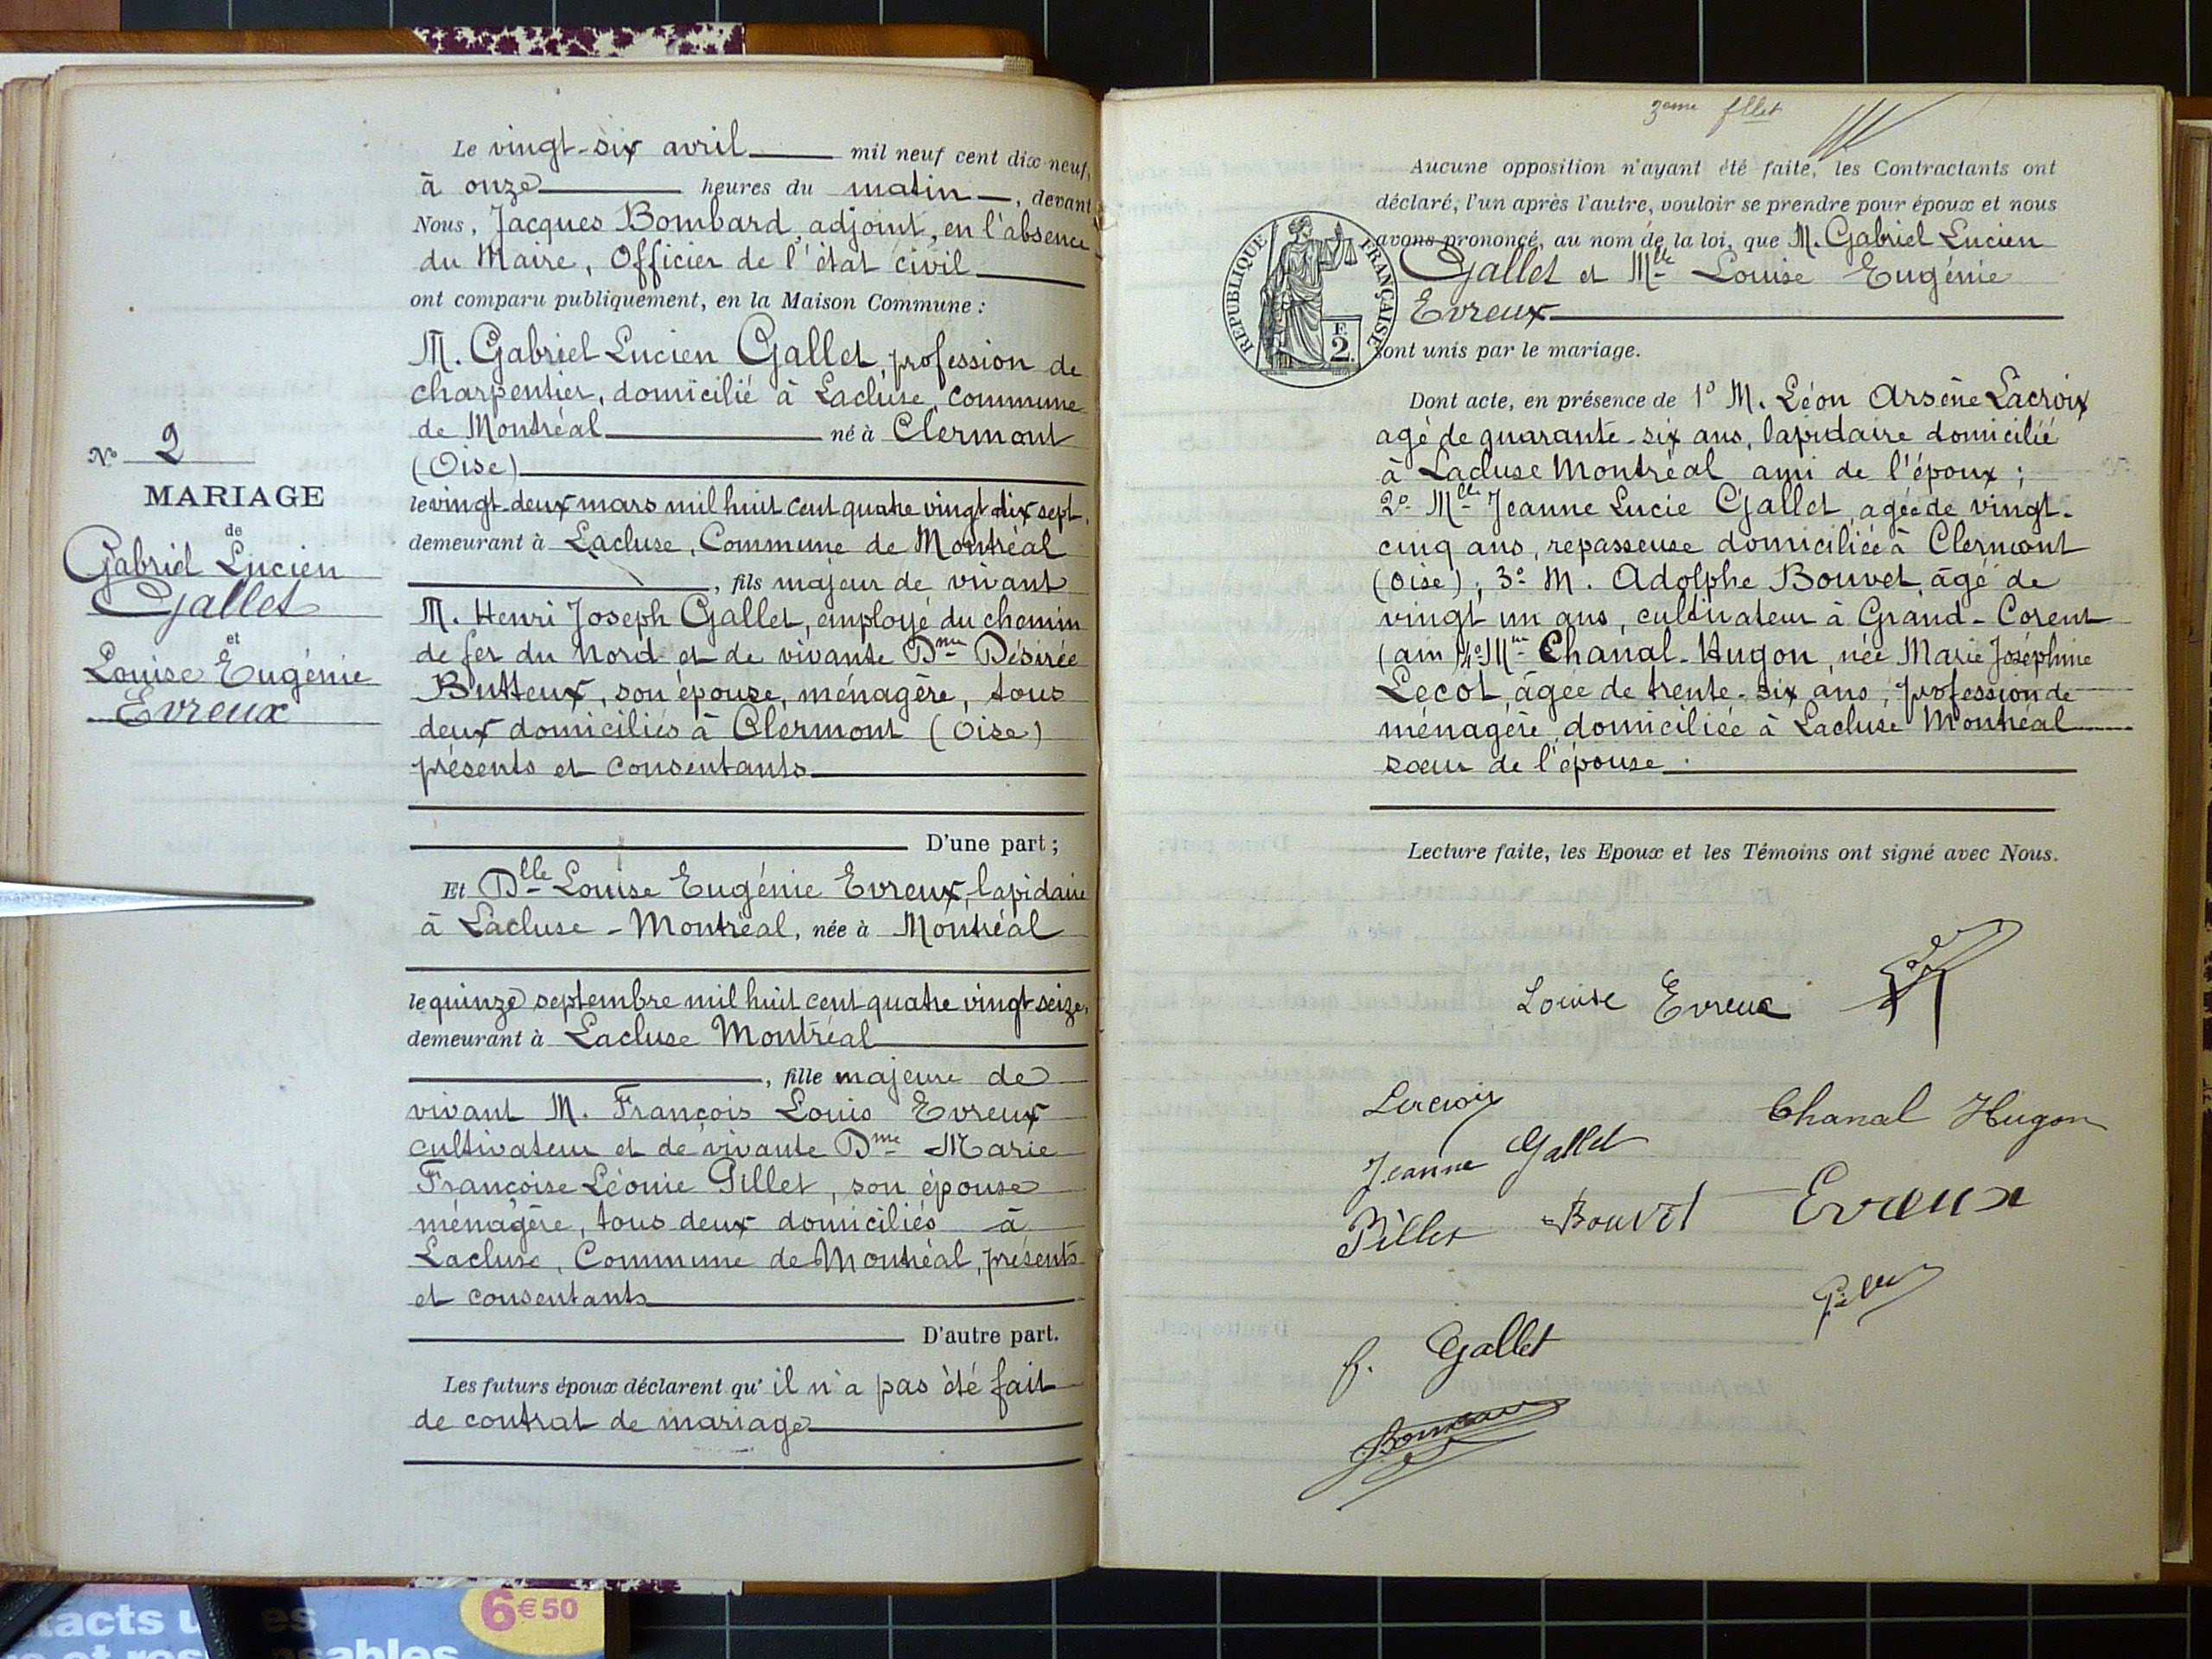 Le vingt-six avril mil neuf cent dix-neuf,
à onze heures du matin, devant
Nous, Jacques Bombard, adjoint, en l'absence
du Maire, Officier de l'état civil
ont comparu publiquement, en la Maison Commune :
M. Gabriel Lucien Gallet, profession de
charpentier, domicilié à Lacluse, commune
de Montréal né à Clermont
(Oise)
le vingt-deux mars mil huit cent quatre vingt dix sept,
demeurant à Lacluse, Commune de Montréal
, fils majeur de vivant
M. Henri Joseph Gallet, employé du chemin
de fer du Nord et de vivante Dme Désirée
Butteux, son épouse, ménagère, tous
deux domiciliés à Clermont (Oise)
présents et consentants
D'une part ;
Et Dlle Louise Eugénie Evreux, lapidaire
à Lacluse - Montréal, née à Montréal
le quinze septembre mil huit cent quatre vingt seize,
demeurant à Lacluse Montréal
, fille majeure de
vivant M. François Louis Evreux
cultivateur et de vivante Dme Marie
Françoise Léonie Pillet, son épouse
ménagère, tous deux domiciliés à
Lacluse, Commune de Montréal, présents
et consentants
D'autre part.
Les futurs époux déclarent qu'il n'a pas été fait
de contrat de mariage
No 2
MARIAGE
de
Gabriel Lucien
Gallet
et
Louise Eugénie
Evreux
3eme fllet
Aucune opposition n'ayant été faite, les Contractants ont
déclaré, l'un après l'autre, vouloir se prendre pour époux et nous
avons prononcé, au nom de la loi, que M. Gabriel Lucien
Gallet et Mlle Louise Eugénie
Evreux
sont unis par le mariage.
REPUBLIQUE FRANÇAISE
F.
2.
Dont acte, en présence de 1° M. Léon Arsène Lacroix
agé de quarante-six ans, lapidaire domicilié
à Lacluse Montréal ami de l'époux ;
2° Mlle Jeanne Lucie Gallet, agée de vingt-
cinq ans, repasseuse domiciliée à Clermont
(Oise), 3° M. Adolphe Bouvet, âgé de
vingt un ans, cultivateur à Grand-Corent
(ain) 4° Me Chanal-Hugon, née Marie Joséphine
Lecot, âgée de trente-six ans, profession de
ménagère domiciliée à Lacluse Montréal
sœur de l'épouse.
Lecture faite, les Epoux et les Témoins ont signé avec Nous.
Louise Evreux
Lacroix
Chanal Hugon
Jeanne Gallet
Pillet Bouvet Evreux
Gallet
6€50